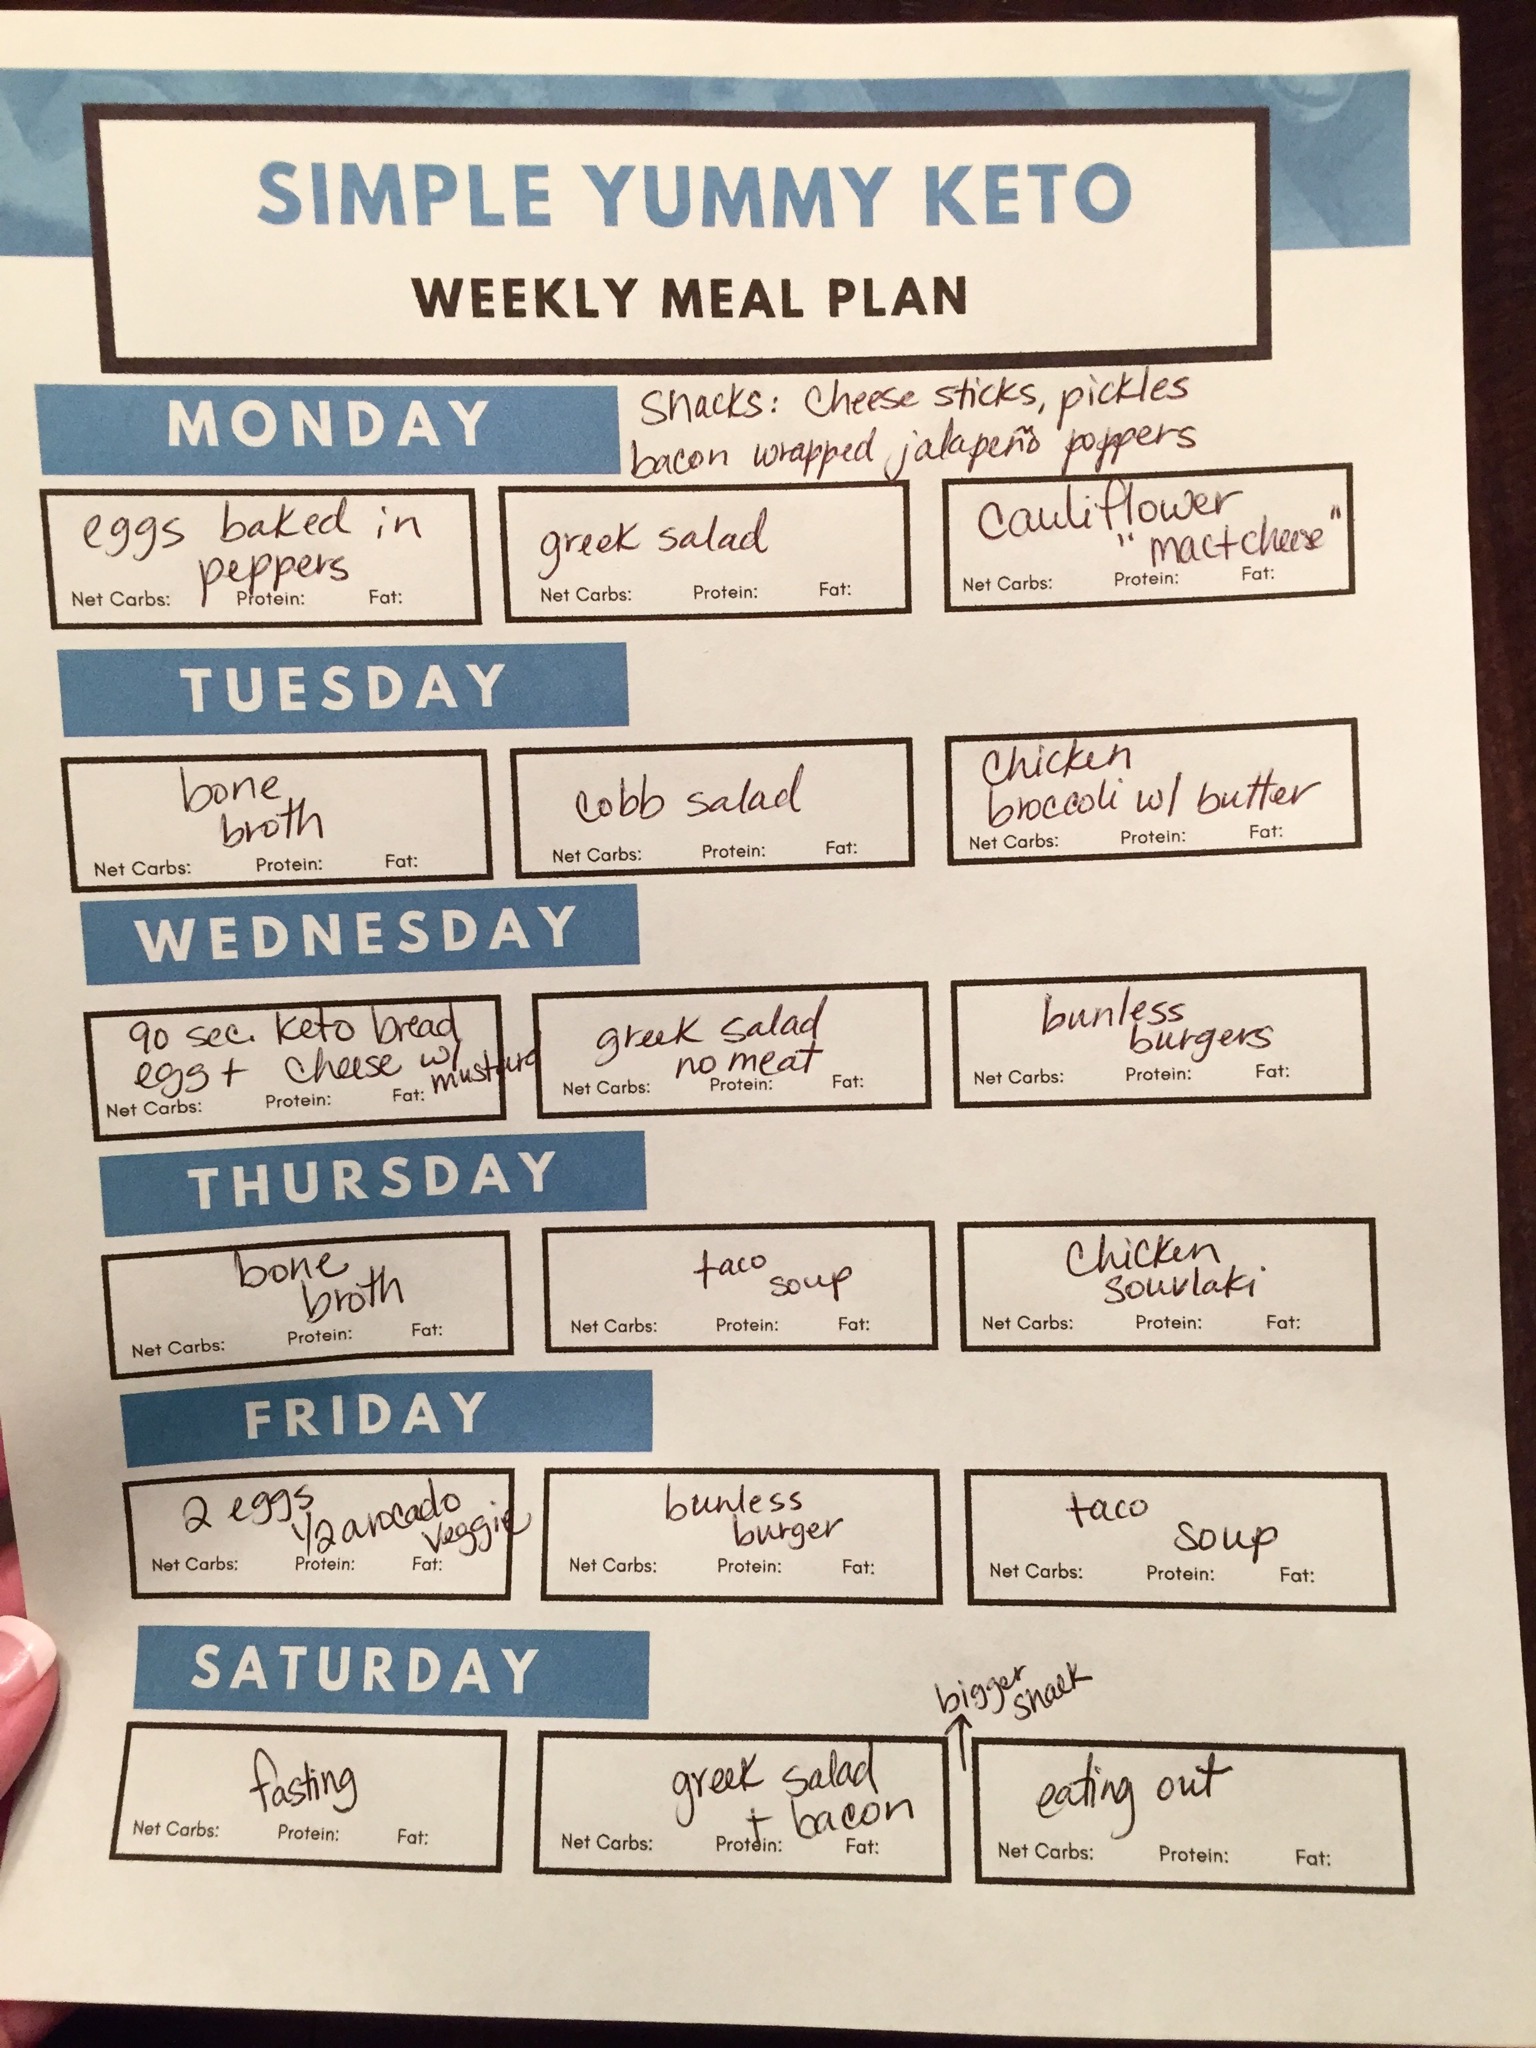 SIMPLE YUMMY KETO
WEEKLY MEAL PLAN
MONDAY
Snacks: Cheese sticks, pickles
bacon wrapped jalapeño poppers
eggs baked in
peppers
Net Carbs: Protein: Fat:
greek salad
Net Carbs: Protein: Fat:
Cauliflower
"mac+cheese"
Net Carbs: Protein: Fat:
TUESDAY
bone
broth
Net Carbs: Protein: Fat:
cobb salad
Net Carbs: Protein: Fat:
Chicken
broccoli w/ butter
Net Carbs: Protein: Fat:
WEDNESDAY
90 sec. keto bread
egg + cheese w/
mustard
Net Carbs: Protein: Fat:
greek salad
no meat
Net Carbs: Protein: Fat:
bunless
burgers
Net Carbs: Protein: Fat:
THURSDAY
bone
broth
Net Carbs: Protein: Fat:
taco
soup
Net Carbs: Protein: Fat:
Chicken
souvlaki
Net Carbs: Protein: Fat:
FRIDAY
2 eggs
1/2 avocado
veggie
Net Carbs: Protein: Fat:
bunless
burger
Net Carbs: Protein: Fat:
taco
soup
Net Carbs: Protein: Fat:
SATURDAY
bigger
snack
fasting
Net Carbs: Protein: Fat:
greek salad
+ bacon
Net Carbs: Protein: Fat:
eating out
Net Carbs: Protein: Fat: